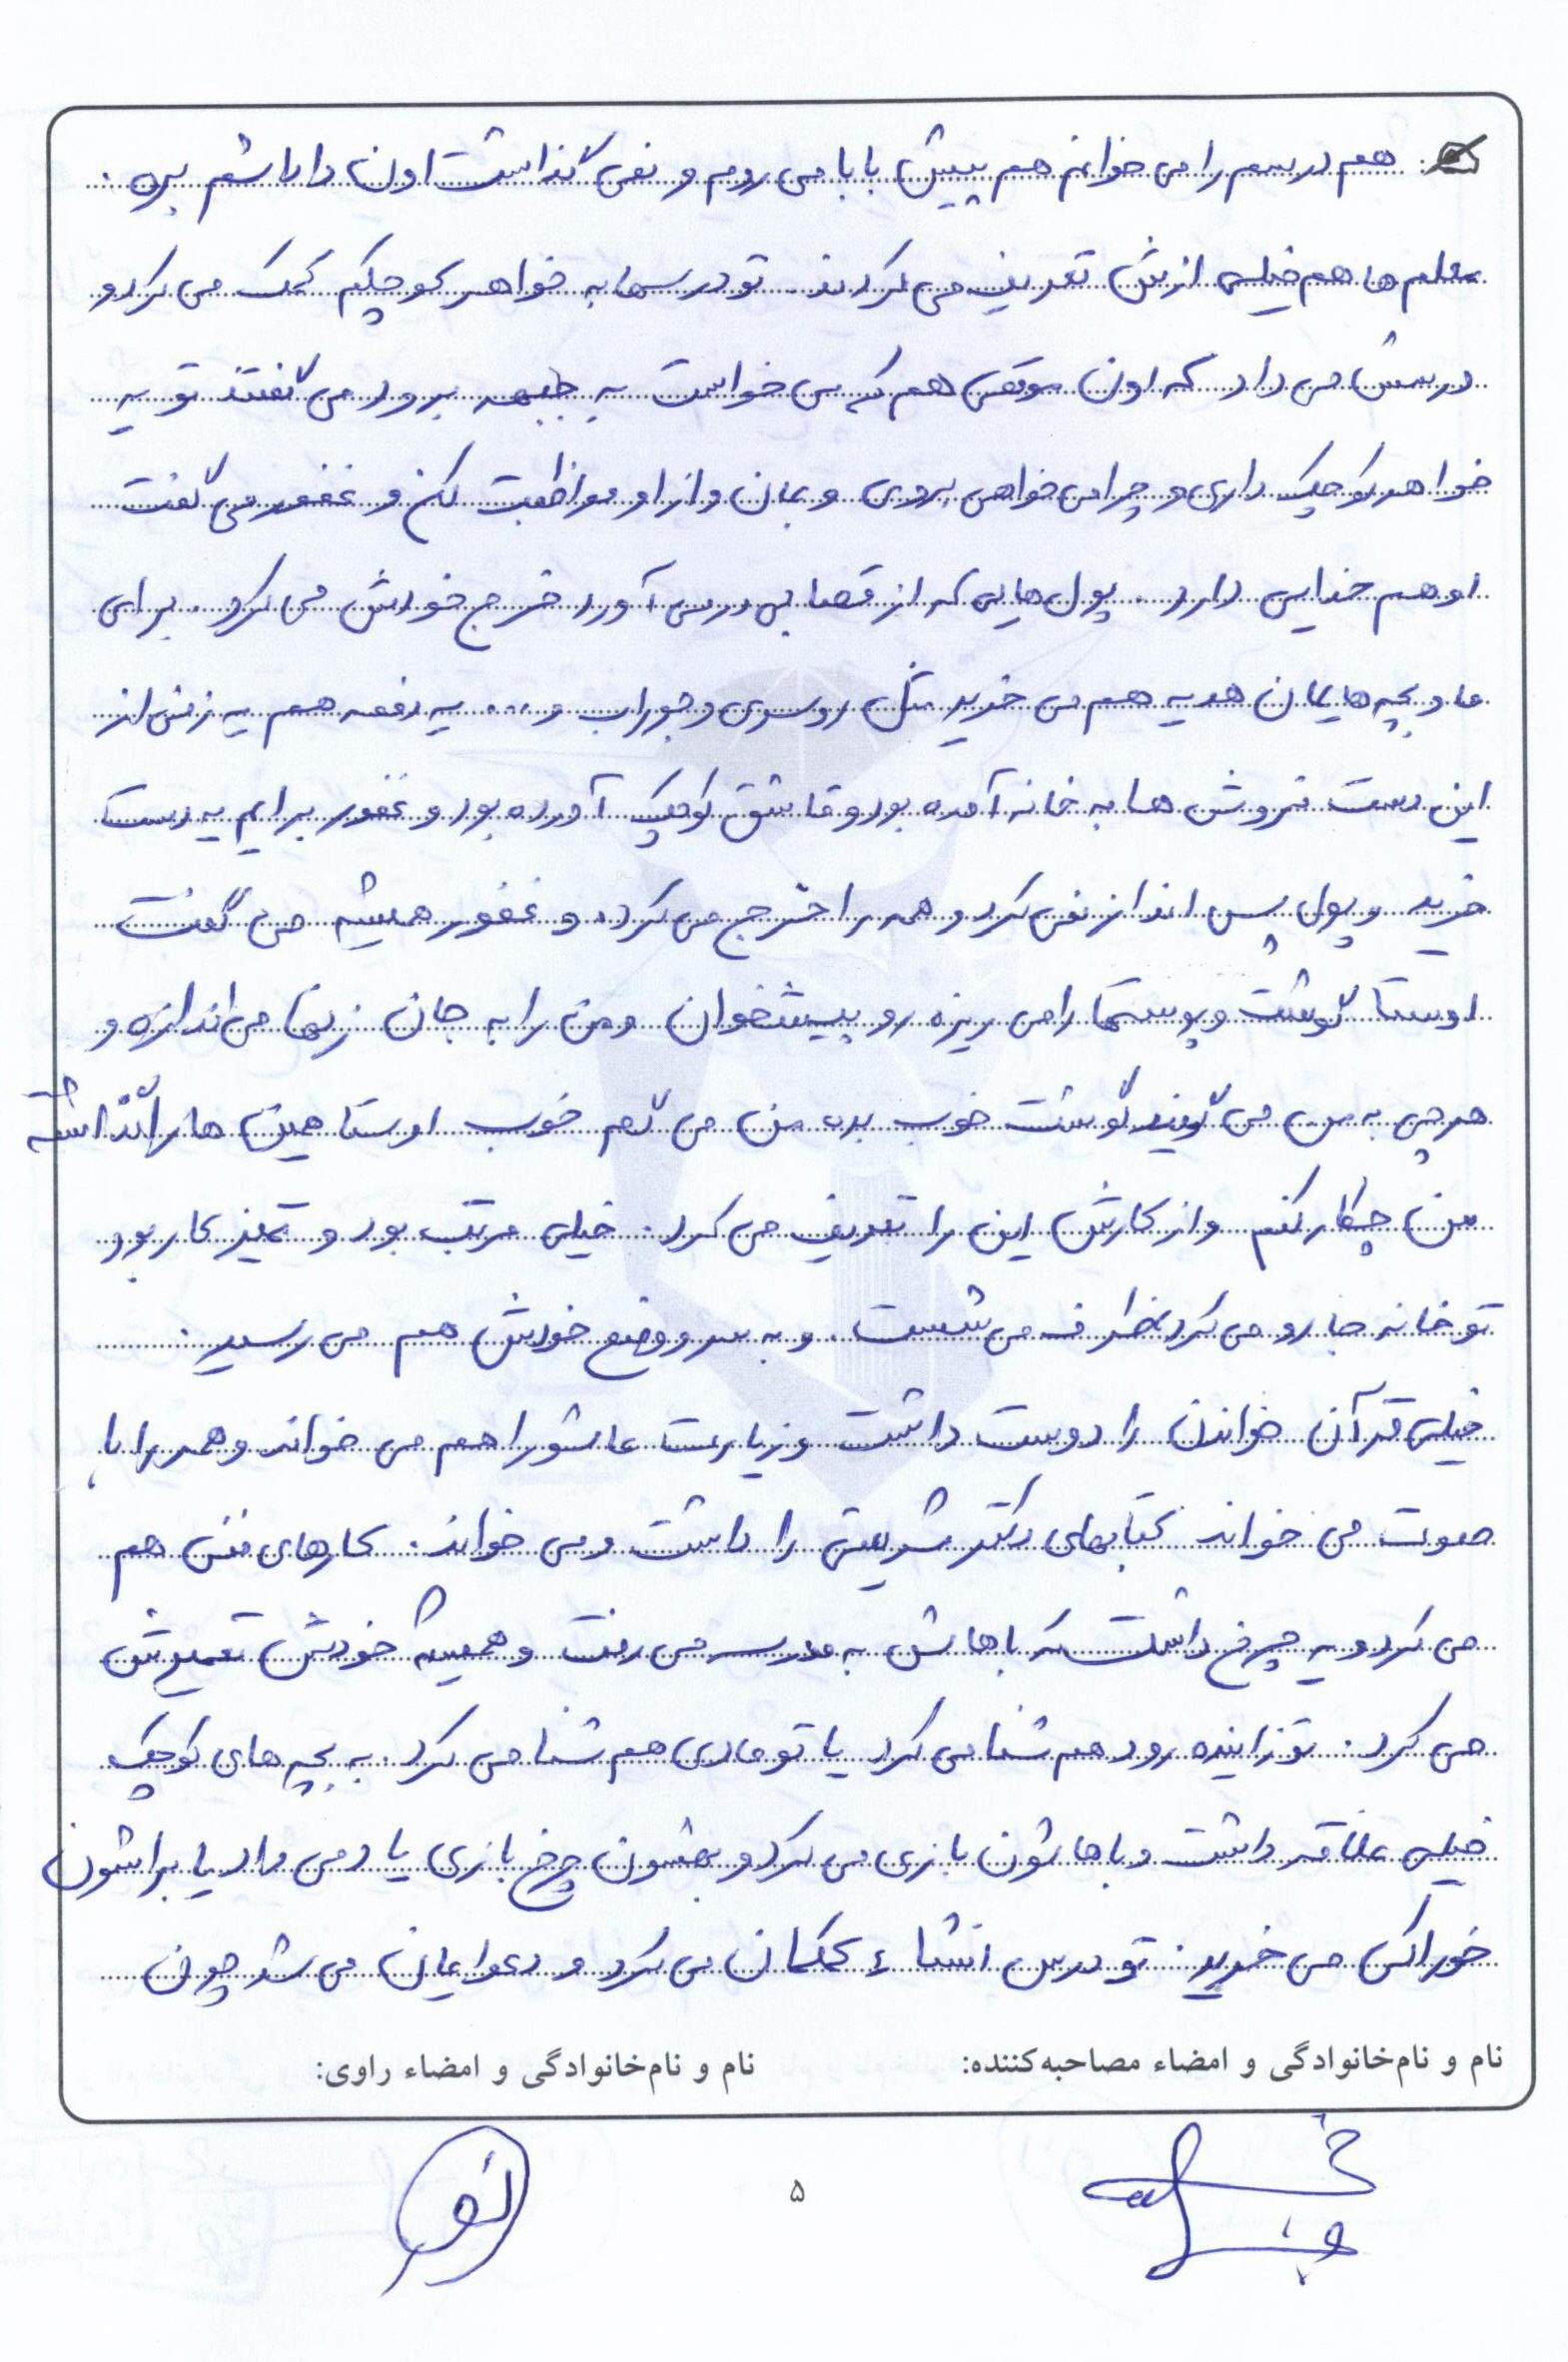 هم درسم را می خوانم هم پیش بابا می روم و نمی گذاشت اون داداشم بره .
معلم ها هم خیلی ازش تعریف می کردند . تو درسها به خواهر کوچکم کمک می کرد و
درسش می داد که اون موقعی هم که می خواست به جبهه برود می گفتند تو یه
خواهر کوچک داری و چرا می خواهی بروی و بمان و از او مواظبت کن و غفور می گفت
او هم خدایی دارد . پول هایی که از قصابی درمی آورد خرج خودش می کرد . برای
ما و بچه هایمان هدیه هم می خرید مثل روسری و جوراب و .... یه دفعه هم یه زنی از
این دست فروش ها به خانه آمده بود و قاشق کوچک آورده بود و غفور برایم یه دست
خرید و پول پس انداز نمی کرد و همه را خرج می کرد . و غفور همیشه می گفت
اوستا گوشت و پوستها را می ریزه رو پیشخوان و من را به جان زنها می اندازه و
هرچی به من می گویند گوشت خوب بده من می گم خوب اوستا همین ها را گذاشته
من چکار کنم و از کارش این را تعریف می کرد . خیلی مرتب بود و تمیز کار بود
تو خانه جارو می کرد ظرف می شست . و به سر و وضع خودش هم می رسید .
خیلی قرآن خواندن را دوست داشت و زیارت عاشورا هم می خواند و همه را با
صوت می خواند کتابهای دکتر شریعتی را داشت و می خواند . کارهای فنی هم
می کرد و یه چرخ داشت که باهاش به مدرسه می رفت و همیشه خودش تعمیرش
می کرد . تو زاینده رود هم شنا می کرد یا تو مادی هم شنا می کرد . به بچه های کوچک
خیلی علاقه داشت و باهاشون بازی می کرد و بهشون چرخ بازی یاد می داد یا براشون
خوراکی می خرید . تو درس انشاء کمکمان می کرد و دعوایمان می شد چون
نام و نام‌خانوادگی و امضاء مصاحبه‌کننده: نام و نام‌خانوادگی و امضاء راوی:
۵